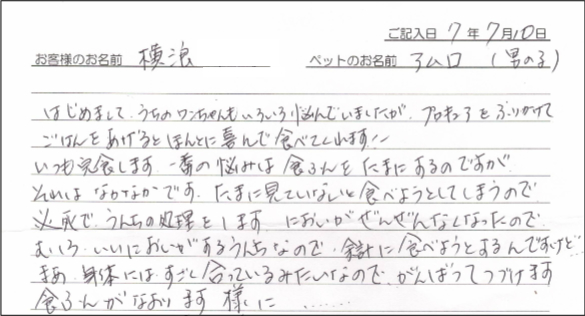 ご記入日 7 年 7月10日
お客様のお名前 横浪 ペットのお名前 アムロ (男の子)
はじめまして、うちのワンちゃんもいろいろ悩んでいましたが、プロキュアをふりかけて
ごはんをあげるとほんとに喜んで食べてくれます!!
いつも完食します。一番の悩みは食ふんをたまにするのですが
それは なかなかです。たまに見ていないと食べようとしてしまうので
必死で、うんちの処理をします。においがぜんぜんなくなったので
むしろ、いいにおいがするうんちなので、余計に食べようとするんですけど…
まあ、身体にはすごく合っているみたいなので、がんばってつづけます
食ふんがなおります様に ……